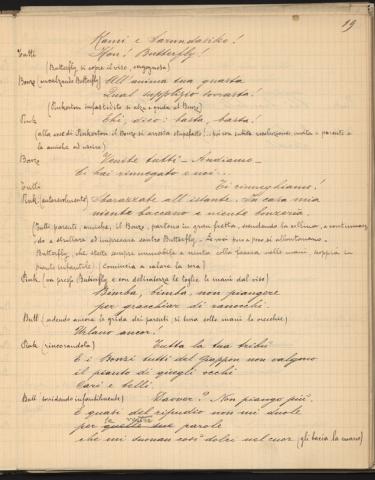 19
Kami e Sarundasiko!
Tutti Hou! Butterfly!
(Butterfly si copre il viso, vergognosa)
Bonzo (incalzando Butterfly) All'anima tua guasta
Qual supplizio sovrasta!
(Pinkerton infastidito si alza e grida al Bonzo)
Pink Ehi, dico: basta, basta!
(alla voce di Pinkerton il Bonzo si arresta stupefatto!.. poi con subita risoluzione invita i parenti e
le amiche ad uscire)
Bonzo Venite tutti - Andiamo -
Ci hai rinnegato e noi...
Tutti Ti rinneghiamo!
Pink (autorevolmente) Sbarazzate all'istante. In casa mia
niente baccano e niente bonzeria.
(Tutti, parenti, amiche, il Bonzo, partono in gran fretta, scendendo la collina, e continuan-
do a strillare ed imprecare contro Butterfly - Le voci poco a poco si allontanano.
Butterfly, che stette sempre immobile e muta colla faccia nelle mani, scoppia in
pianto infantile) (Comincia a calare la sera)
Pink (va presso Butterfly e con delicatezza le toglie le mani dal viso)
Bimba, bimba, non piangere
per gracchiar di ranocchi.
Butt (udendo ancora le grida dei parenti, si tura colle mani le orecchie)
Urlano ancor!
Pink (rincorandola) Tutta la tua tribù
E i Bonzi tutti del Giappon non valgono
il pianto di quegli occhi
Cari e belli.
Butt sorridendo infantilmente) Davver? Non piango più.
E quasi del ripudio non mi duole
le vostre
per quelle sue parole
che mi suonan così dolci nel cuor (gli bacia la mano)